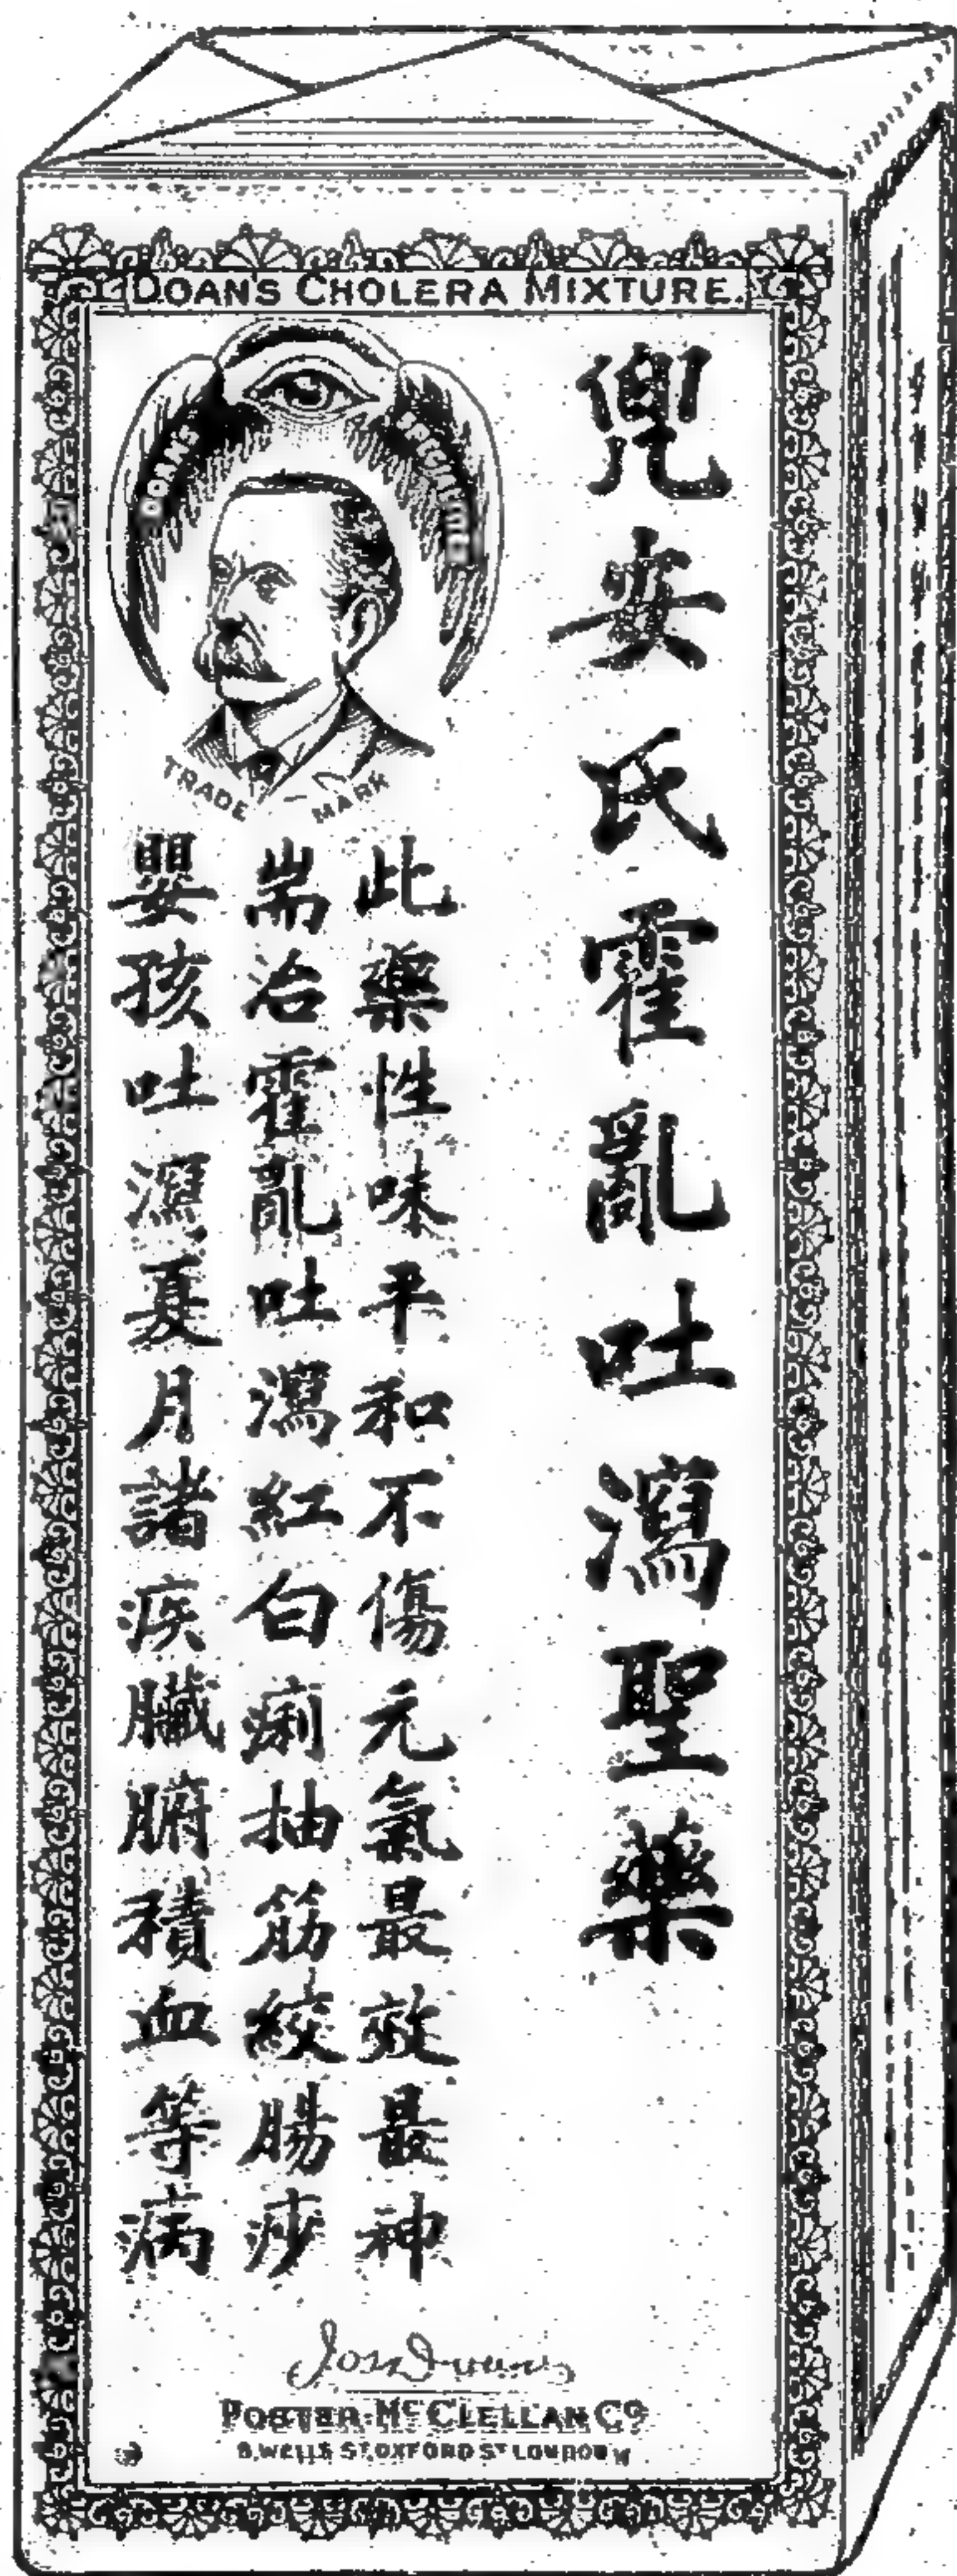 DOAN'S CHOLERA MIXTURE.
DOAN'S
TRADE MARK
兜安氏霍亂吐瀉聖藥
此藥性味平和不傷元氣最效最神
耑治霍亂吐瀉紅白痢抽筋絞腸痧
嬰孩吐瀉夏月諸疾臟腑積血等病
Jos. Doan
FOSTER-McCLELLAN Co
8, WELLS ST, OXFORD ST LONDON W